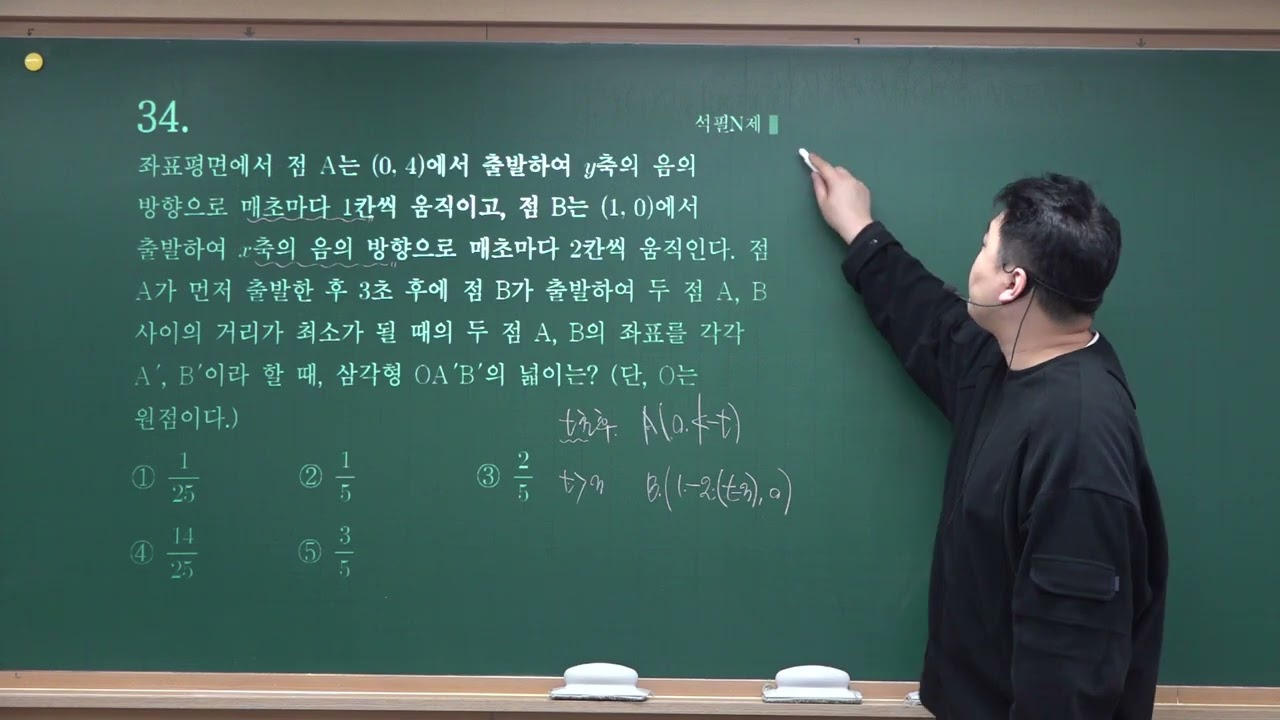 34.
석필N제
좌표평면에서 점 A는 (0, 4)에서 출발하여 y축의 음의
방향으로 매초마다 1칸씩 움직이고, 점 B는 (1, 0)에서
출발하여 x축의 음의 방향으로 매초마다 2칸씩 움직인다. 점
A가 먼저 출발한 후 3초 후에 점 B가 출발하여 두 점 A, B
사이의 거리가 최소가 될 때의 두 점 A, B의 좌표를 각각
A′, B′이라 할 때, 삼각형 OA′B′의 넓이는? (단, O는
원점이다.)
t초후. A(0, 4-t)
t>3 B.(1-2(t-3), 0)
① 1/25 ② 1/5 ③ 2/5
④ 14/25 ⑤ 3/5